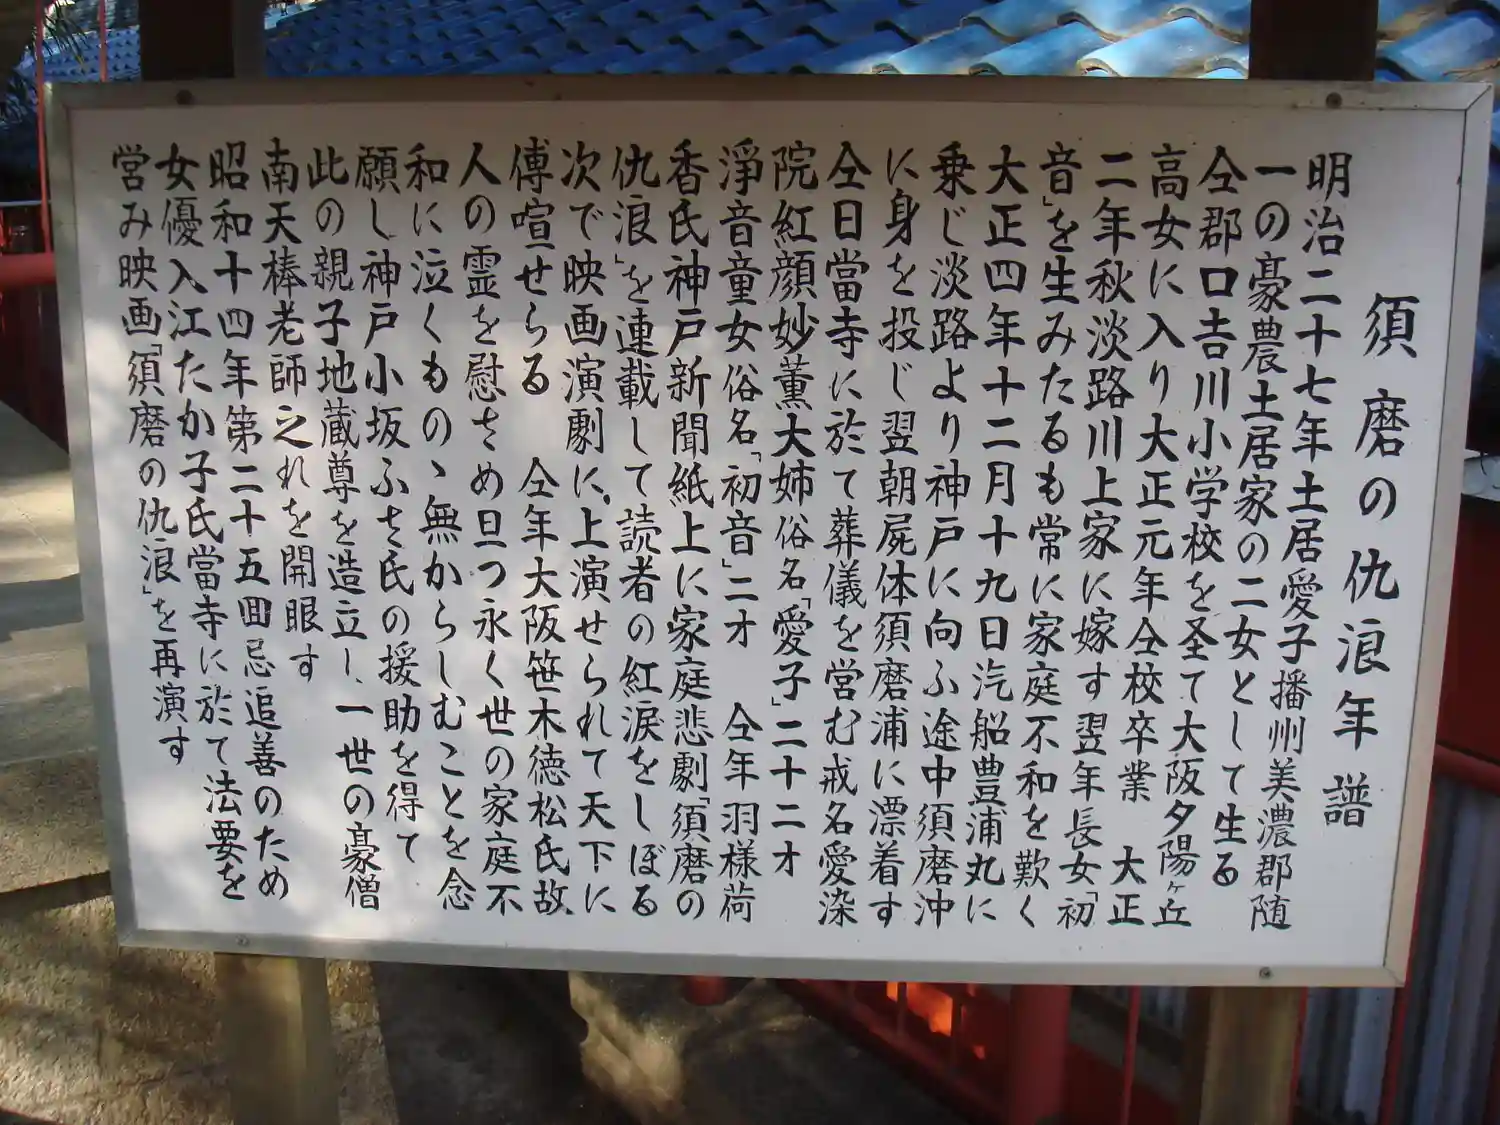 須磨の仇浪年譜
明治二十七年土居愛子播州美濃郡随
一の豪農土居家の二女として生る
仝郡口吉川小学校を圣て大阪夕陽ヶ丘
高女に入り大正元年仝校卒業　大正
二年秋淡路川上家に嫁す翌年長女「初
音」を生みたるも常に家庭不和を歎く
大正四年十二月十九日汽船豊浦丸に
乗じ淡路より神戸に向ふ途中須磨沖
に身を投じ翌朝屍体須磨浦に漂着す
仝日當寺に於て葬儀を営む戒名愛染
院紅顔妙薫大姉俗名「愛子」二十二才
淨音童女俗名「初音」二才　仝年羽様荷
香氏神戸新聞紙上に家庭悲劇「須磨の
仇浪」を連載して読者の紅涙をしぼる
次で映画演劇に上演せられて天下に
傳喧せらる　仝年大阪笹木徳松氏故
人の霊を慰さめ旦つ永く世の家庭不
和に泣くもの、無からしむことを念
願し神戸小坂ふさ氏の援助を得て
此の親子地蔵尊を造立し、一世の豪僧
南天棒老師之れを開眼す
昭和十四年第二十五回忌追善のため
女優入江たか子氏當寺に於て法要を
営み映画「須磨の仇浪」を再演す